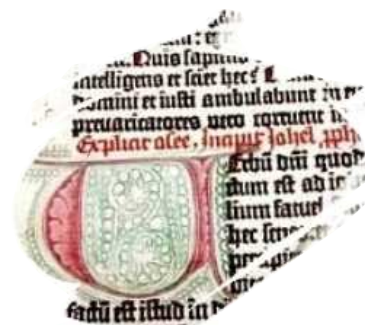 Quis sapiens
intelligens et sciet hec?
domini et iusti ambulabunt in
prevaricatores vero corruent
Explicit osee. Incipit Johel, pph
Verbū dn̄i quod
tum est ad
lium fatuel
hec senes
factū est istud in